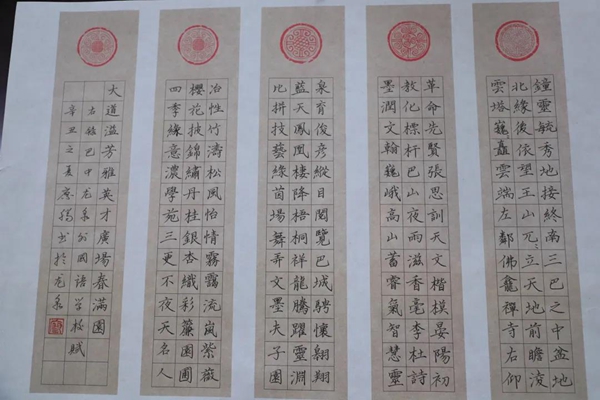 鐘靈毓秀地接終南三巴之中盆地
北緣後依望王山兀立天地前瞻浚
雲塔巍矗雲端左鄰佛龕禪寺右仰
革命先賢張思訓天文楷模晏陽初
教化標杆巴山夜雨滋香毫李杜詩
墨潤文翰巍峨高山蓄睿氣智慧靈
泉育俊彥縱目閱覽巴城騁懷翱翔
藍天鳳凰棲降梧桐祥龍騰躍靈淵
比拼技藝綠茵場舞弄文墨夫子園
冶性竹濤松風怡情霧靄流嵐紫薇
櫻花披錦繡丹桂銀杏織彩簾園圃
四季綠意濃學苑三更不夜天名人
大道溢芳雅英才廣場春滿園
右錄巴中龙泉外國語学校賦
辛丑之夏书於龙泉